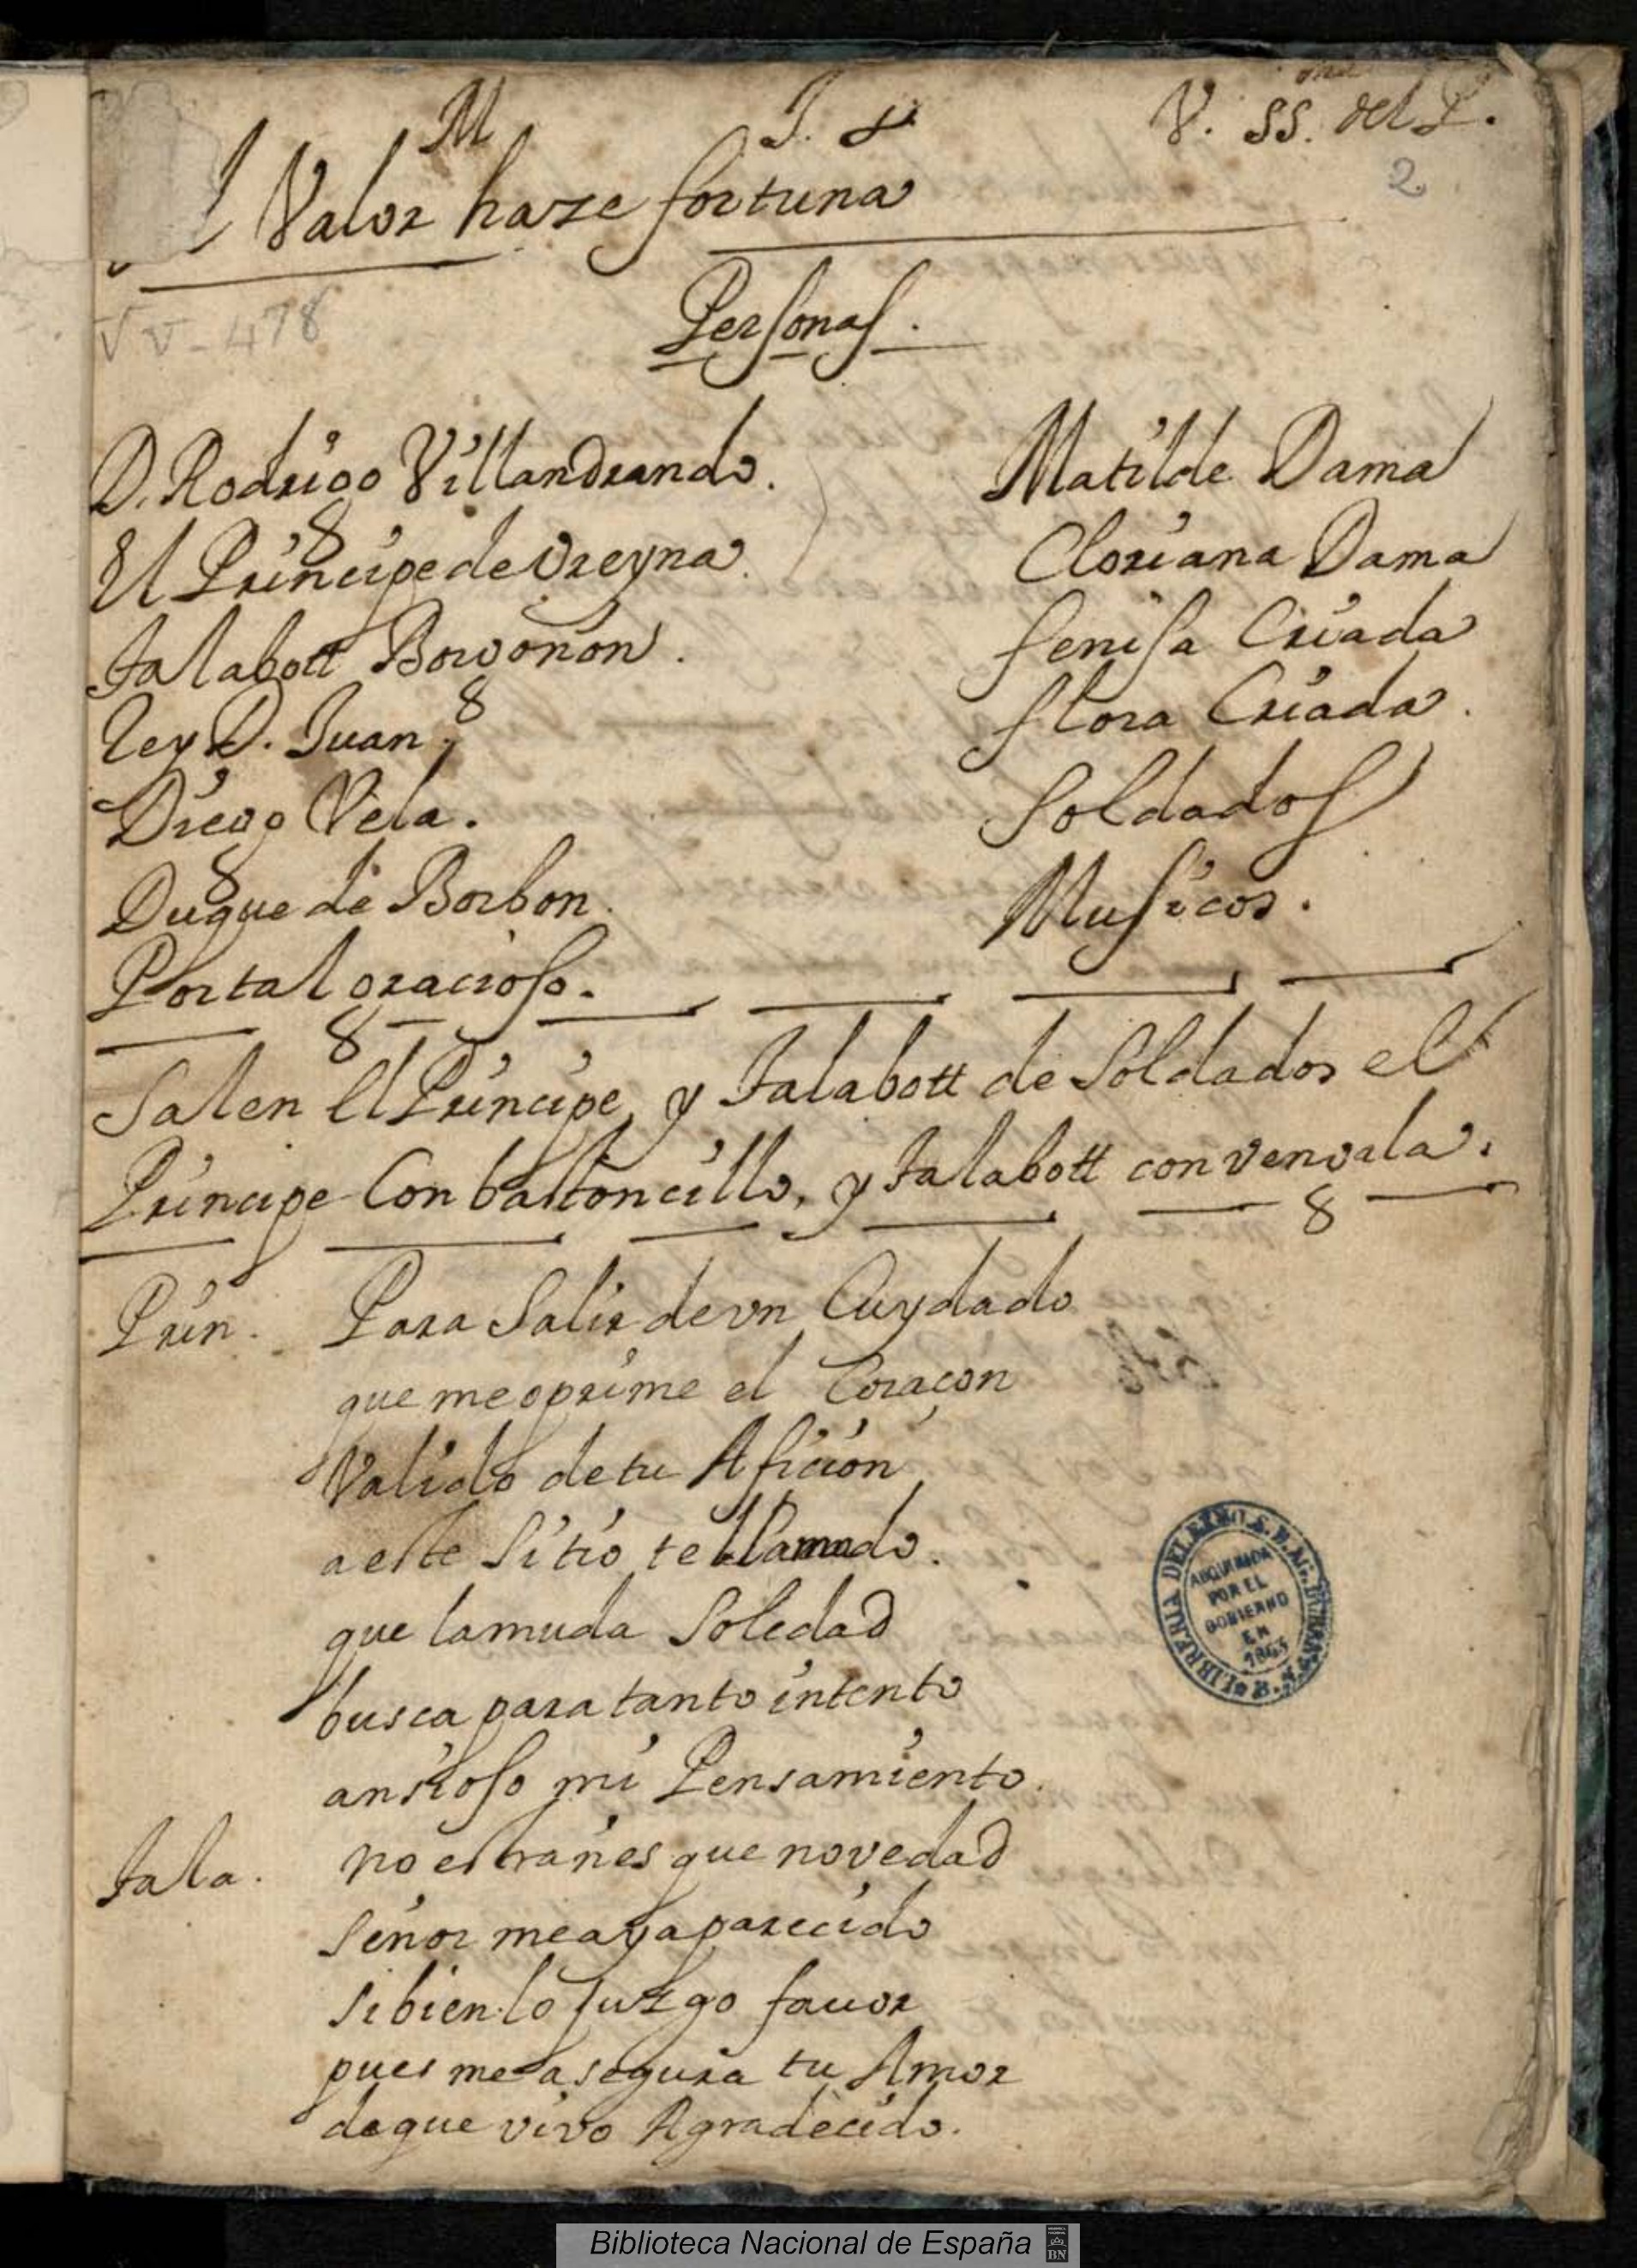 M J. V. SS. del P.
2
Valor haze fortuna
VV-478
Personas.
D. Rodrigo Villandrando.
El Principe de Vreyna
Talabott Borgoñon.
Rey D. Juan.
Diego Vela.
Duque de Borbon.
Portal gracioso.
Matilde Dama
Cloriana Dama
fenisa Criada
flora Criada.
Soldados
Musicos.
Salen el Principe, y Talabott de Soldados el
Principe Con bastoncillo, y Talabott con vengala.
Prin. Para Salir de vn Cuydado
que me oprime el Coraçon
Valido de tu Aficion
a este Sitio te llamado.
que la muda Soledad
busca para tanto intento
ansioso mi Pensamiento.
Tala. no estrañes que novedad
Señor me aya parecido
si bien lo juzgo fauor
pues me asegura tu Amor
de que vivo Agradecido.
LIBRERIA DEL EXMO. S. D. AG. DURAN
ADQUIRIDA
POR EL
GOBIERNO
EN
1863
B. N.
Biblioteca Nacional de España
BN